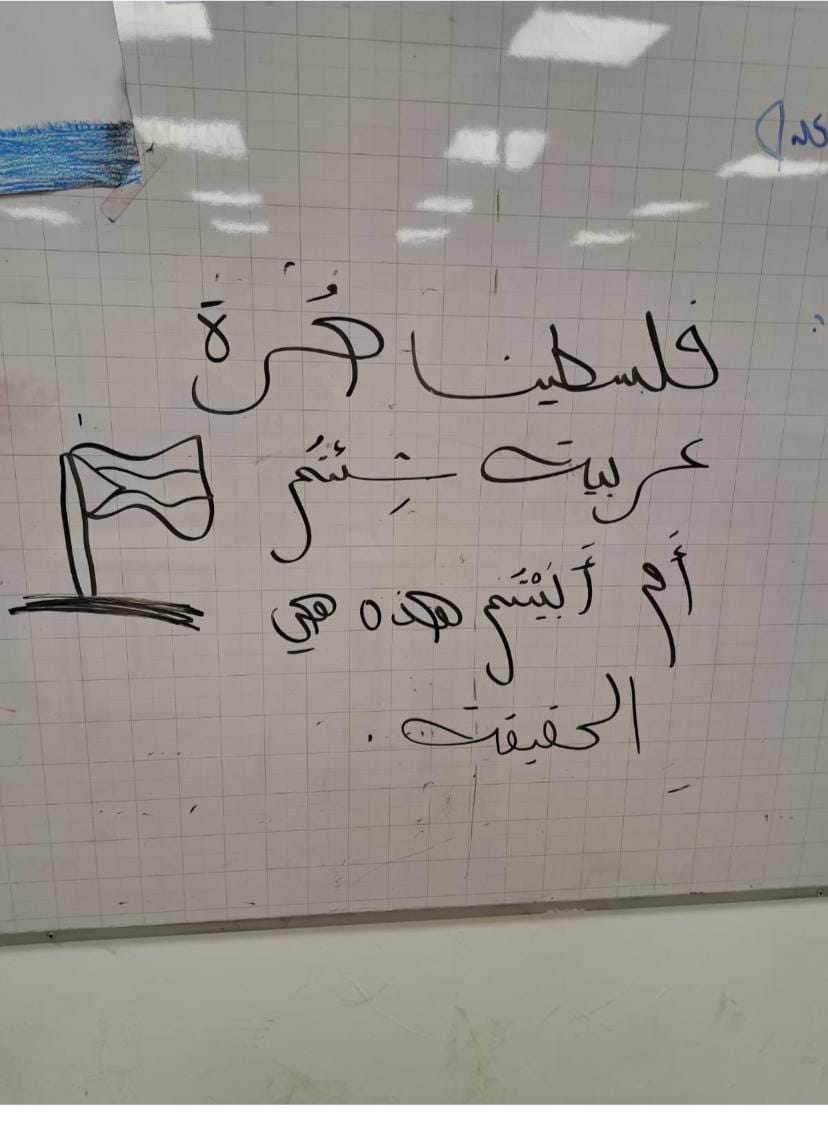 فلسطينا حُرة
عربيت شِئتُم
أَم أَبَيْتُم هذه هي
الحقيقت.